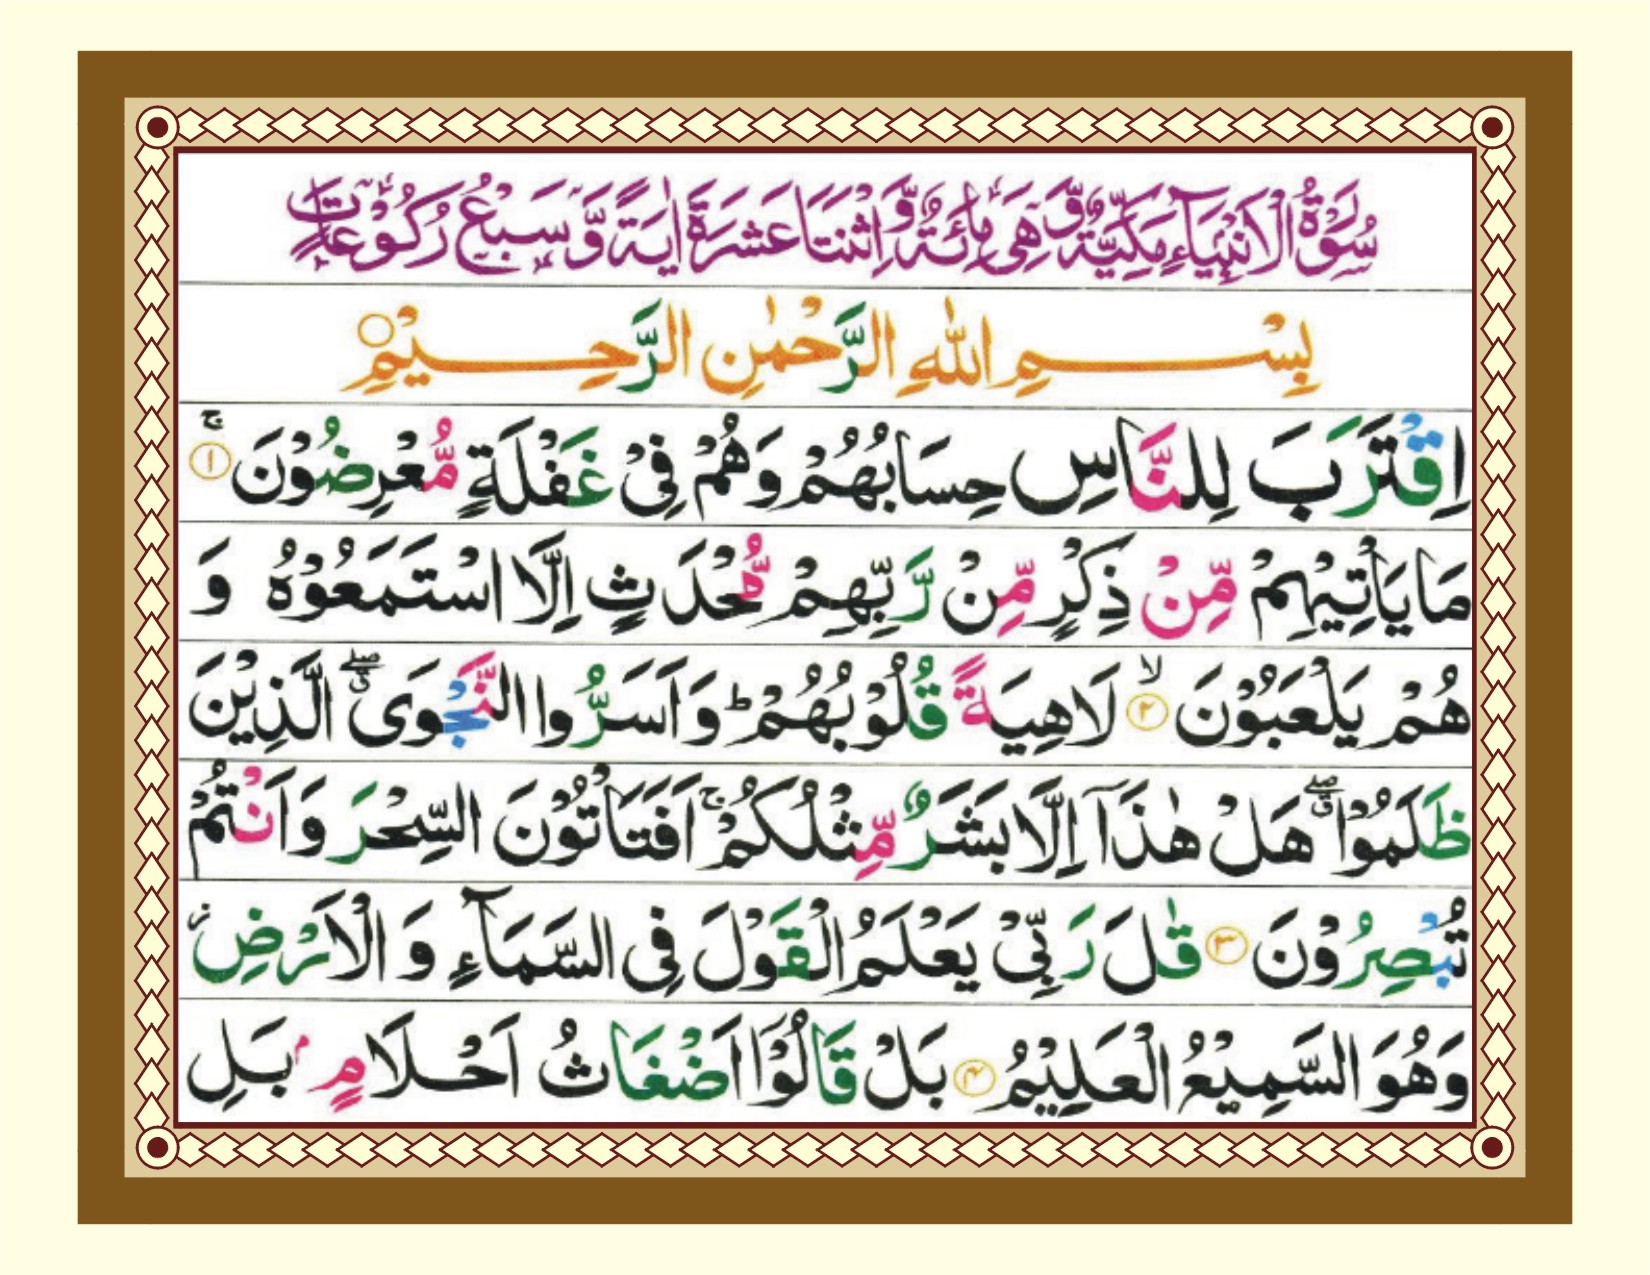 سُوْرَةُ الْاَنْبِيَآءِ مَكِّيَّةٌ وَّهِىَ مِائَةٌ وَّاثْنَتَا عَشَرَةَ اٰيَةً وَّسَبْعُ رُكُوْعَاتٍ
بِسْمِ اللّٰهِ الرَّحْمٰنِ الرَّحِيْمِ ○
اِقْتَرَبَ لِلنَّاسِ حِسَابُهُمْ وَهُمْ فِىْ غَفْلَةٍ مُّعْرِضُوْنَ ۚ ﴿۱﴾
مَا يَاْتِيْهِمْ مِّنْ ذِكْرٍ مِّنْ رَّبِّهِمْ مُّحْدَثٍ اِلَّا اسْتَمَعُوْهُ وَ
هُمْ يَلْعَبُوْنَ ۙ ﴿۲﴾ لَاهِيَةً قُلُوْبُهُمْ ؕ وَاَسَرُّوا النَّجْوَى ۖۗ الَّذِيْنَ
ظَلَمُوْا ۖۗ هَلْ هٰذَاۤ اِلَّا بَشَرٌ مِّثْلُكُمْ ۚ اَفَتَاْتُوْنَ السِّحْرَ وَاَنْتُمْ
تُبْصِرُوْنَ ﴿۳﴾ قٰلَ رَبِّىْ يَعْلَمُ الْقَوْلَ فِى السَّمَآءِ وَ الْاَرْضِ ز
وَهُوَ السَّمِيْعُ الْعَلِيْمُ ﴿۴﴾ بَلْ قَالُوْۤا اَضْغَاثُ اَحْلَامٍۭ بَلِ